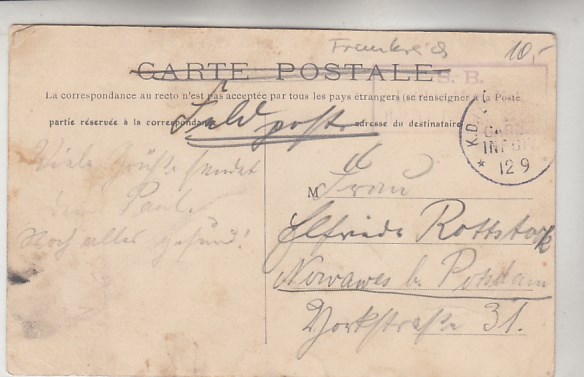 Frankreich 10,-
CARTE POSTALE
S. B.
La correspondance au recto n'est pas acceptée par tous les pays étrangers (se renseigner à la Poste
partie réservée à la correspondance adresse du destinataire
Feldpost
K.D.
12 9
Viele Grüße sendet
Paul
Noch alles gesund!
M Frau
Elfriede Rottstock
Nowawes b. Potsdam
Yorkstraße 31.